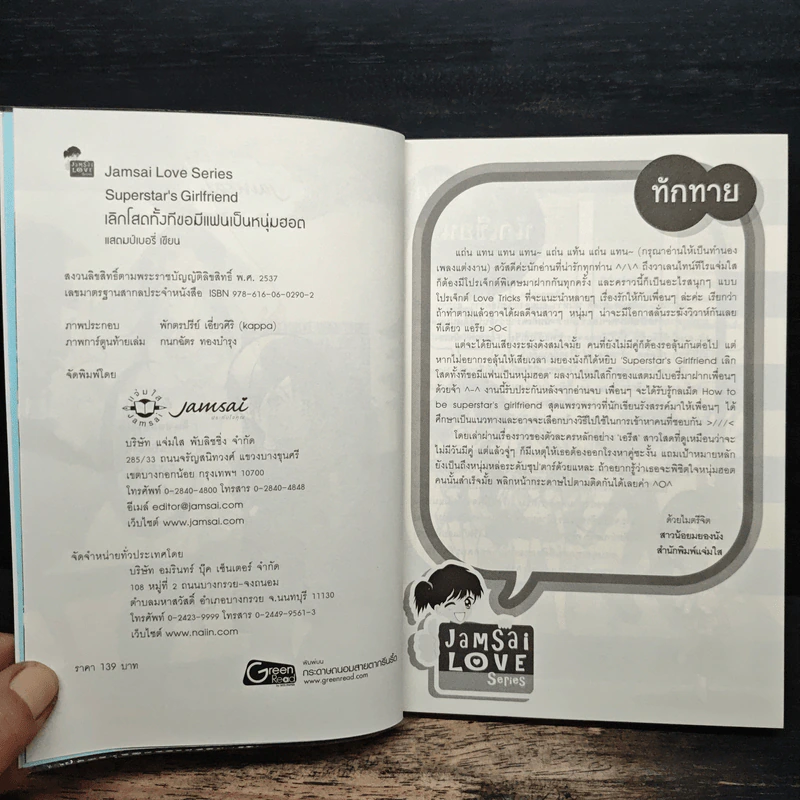 JAMSAI
LOVE
Series
Jamsai Love Series
Superstar's Girlfriend
เลิกโสดทั้งทีขอมีแฟนเป็นหนุ่มฮอต
แสตมป์เบอรี่ เขียน
สงวนลิขสิทธิ์ตามพระราชบัญญัติลิขสิทธิ์ พ.ศ. 2537
เลขมาตรฐานสากลประจำหนังสือ ISBN 978-616-06-0290-2
ภาพประกอบ พักตรปรีย์ เอี่ยวศิริ (kappa)
ภาพการ์ตูนท้ายเล่ม กนกฉัตร ทองบำรุง
จัดพิมพ์โดย
แจ่มใส
Jamsai
Jamsai
บริษัท แจ่มใส พับลิชชิ่ง จำกัด
285/33 ถนนจรัญสนิทวงศ์ แขวงบางขุนศรี
เขตบางกอกน้อย กรุงเทพฯ 10700
โทรศัพท์ 0-2840-4800 โทรสาร 0-2840-4848
อีเมล์ editor@jamsai.com
เว็บไซต์ www.jamsai.com
จัดจำหน่ายทั่วประเทศโดย
บริษัท อมรินทร์ บุ๊ค เซ็นเตอร์ จำกัด
108 หมู่ที่ 2 ถนนบางกรวย-จงถนอม
ตำบลมหาสวัสดิ์ อำเภอบางกรวย จ.นนทบุรี 11130
โทรศัพท์ 0-2423-9999 โทรสาร 0-2449-9561-3
เว็บไซต์ www.naiin.com
ราคา 139 บาท
Green
Read
พิมพ์บน
กระดาษถนอมสายตากรีนรี้ด
www.greenread.com
ทักทาย
แถ่น แทน แทน แทน~ แถ่น แท้น แถ่น แทน~ (กรุณาอ่านให้เป็นทำนอง
เพลงแต่งงาน) สวัสดีค่ะนักอ่านที่น่ารักทุกท่าน ^/\^ ถึงวาเลนไทน์ทีไรแจ่มใส
ก็ต้องมีโปรเจ็กต์พิเศษมาฝากกันทุกครั้ง และคราวนี้ก็เป็นอะไรสนุกๆ แบบ
โปรเจ็กต์ Love Tricks ที่จะแนะนำหลายๆ เรื่องรักให้กับเพื่อนๆ ล่ะค่ะ เรียกว่า
ถ้าทำตามแล้วอาจได้ผลดีจนสาวๆ หนุ่มๆ น่าจะมีโอกาสลั่นระฆังวิวาห์กันเลย
ทีเดียว แอร๊ย >O<
แต่จะได้ยินเสียงระฆังดังสมใจมั้ย คนที่ยังไม่มีคู่ก็ต้องรอลุ้นกันต่อไป แต่
หากไม่อยากรอลุ้นให้เสียเวลา มยองนังก็ได้หยิบ 'Superstar's Girlfriend เลิก
โสดทั้งทีขอมีแฟนเป็นหนุ่มฮอต' ผลงานใหม่ใสกิ๊กของแสตมป์เบอรี่มาฝากเพื่อนๆ
ด้วยจ้า ^-^ งานนี้รับประกันหลังจากอ่านจบ เพื่อนๆ จะได้รับรู้กลเม็ด How to
be superstar's girlfriend สุดแพรวพราวที่นักเขียนรังสรรค์มาให้เพื่อนๆ ได้
ศึกษาเป็นแนวทางและอาจจะเลือกบางวิธีไปใช้ในการเข้าหาคนที่ชอบกัน >///<
โดยเล่าผ่านเรื่องราวของตัวละครหลักอย่าง 'เอรีส' สาวโสดที่ดูเหมือนว่าจะ
ไม่มีวันมีคู่ แต่แล้วจู่ๆ ก็มีเหตุให้เธอต้องออกโรงหาคู่ซะงั้น แถมเป้าหมายหลัก
ยังเป็นถึงหนุ่มหล่อระดับซุป'ตาร์ด้วยแหละ ถ้าอยากรู้ว่าเธอจะพิชิตใจหนุ่มฮอต
คนนั้นสำเร็จมั้ย พลิกหน้ากระดาษไปตามติดกันได้เลยค่า ^O^
ด้วยไมตรีจิต
สาวน้อยมยองนัง
สำนักพิมพ์แจ่มใส
JAMSAI
LOVE
Series